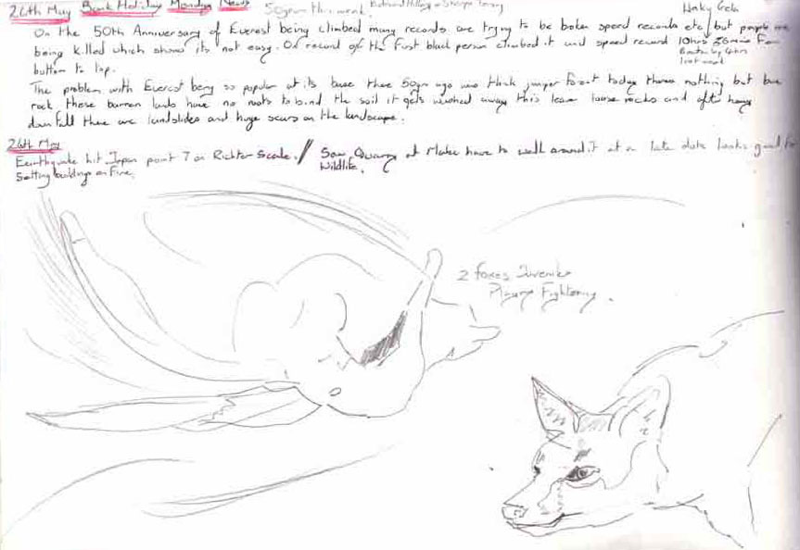 26th May Bank Holiday Monday News 50yrs this week Edmund Hillary + Sherpa Tenzing
On the 50th Anniversary of Everest being climbed many records are trying to be broken speed records etc but people are
being killed which shows its not easy. On record of the first black person climbed it and speed record 10hrs 56min From
Beaten by 4hrs
last week
bottom to top.
The problem with Everest being so popular at its base there 50yrs ago was thick juniper forest today theres nothing but bare
rock these barren lands have no roots to bind the soil it gets washed away this leave loose rocks and after heavy
down fall there are landslides and huge scars on the landscape.
26th May
Earthquake hit Japan point 7 on Richter Scale. // Saw Quarry at have to walk around it at a late date looks good for
Setting buildings on Fire. Wildlife.
2 foxes Juvenile
Playing Fightening.